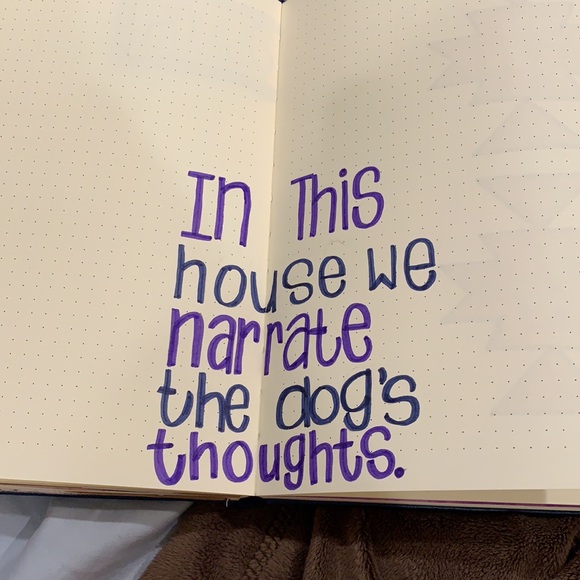 In This
house we
narrate
the dog's
thoughts.